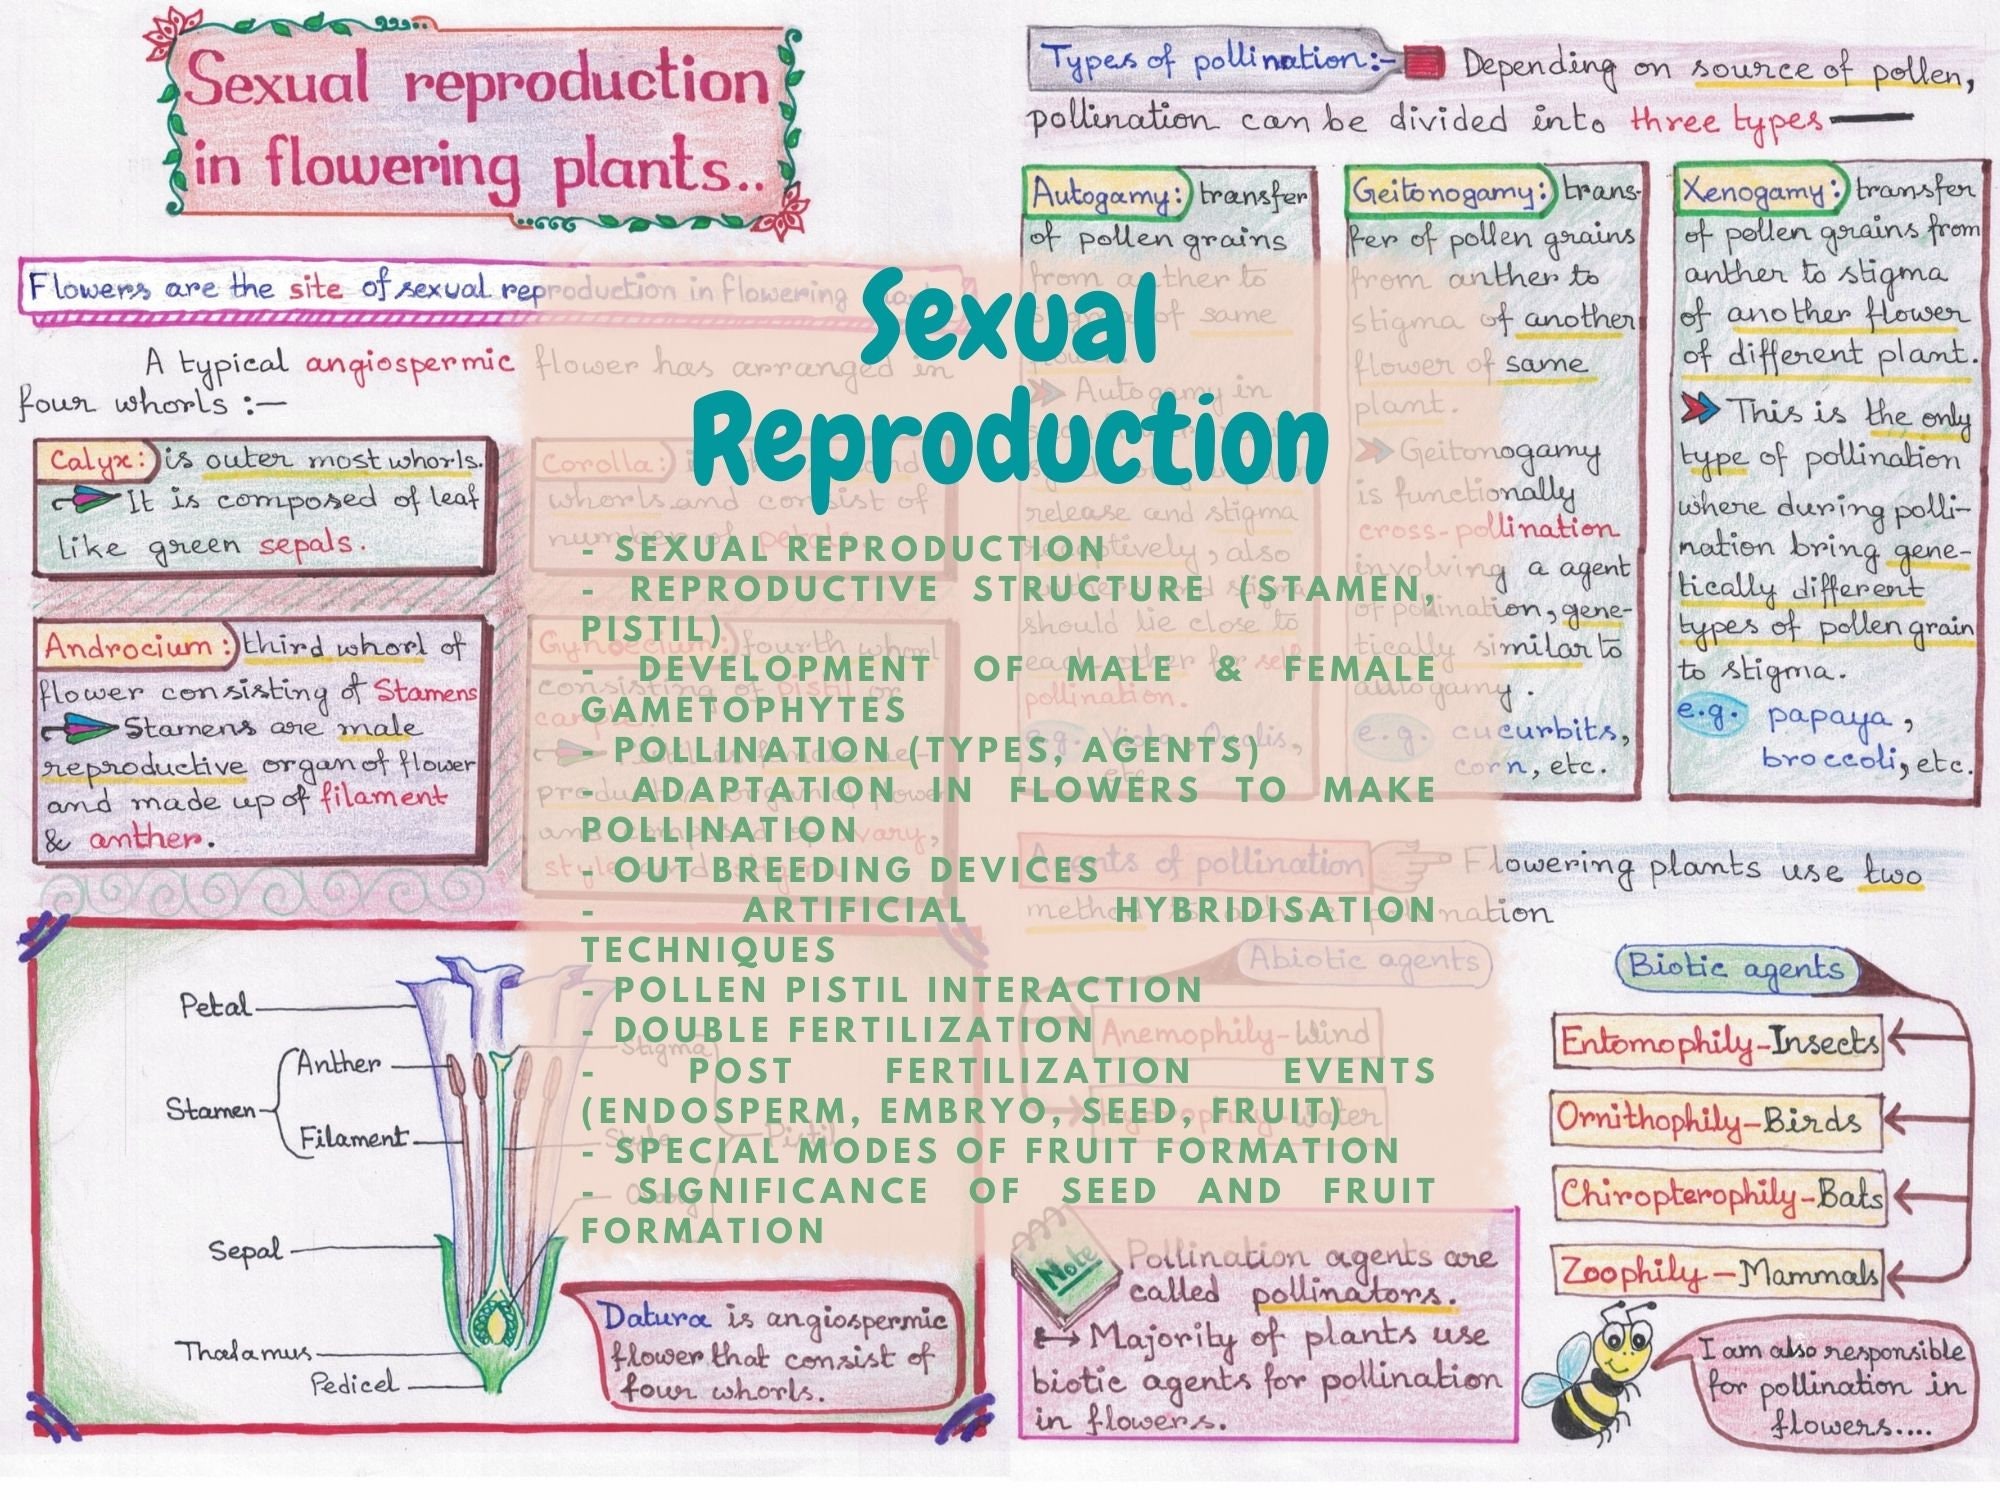 Sexual reproduction
in flowering plants..
Flowers are the site of sexual reproduction in flowering
A typical angiospermic flower has arranged in
four whorls :—
Calyx: is outer most whorls.
It is composed of leaf
like green sepals.
Corolla:
whorls and consist of
number of petals.
Androcium: third whorl of
flower consisting of Stamens
Stamens are male
reproductive organ of flower
and made up of filament
& anther.
Gynoecium: fourth whorl
consisting of pistil or
Petal
Anther
Stamen
Filament
Sepal
Thalamus
Pedicel
Stigma
Style
Pistil
Datura is angiospermic
flower that consist of
four whorls.
Sexual
Reproduction
- SEXUAL REPRODUCTION
- REPRODUCTIVE STRUCTURE (STAMEN,
PISTIL)
- DEVELOPMENT OF MALE & FEMALE
GAMETOPHYTES
- POLLINATION (TYPES, AGENTS)
- ADAPTATION IN FLOWERS TO MAKE
POLLINATION
- OUT BREEDING DEVICES
- ARTIFICIAL HYBRIDISATION
TECHNIQUES
- POLLEN PISTIL INTERACTION
- DOUBLE FERTILIZATION
- POST FERTILIZATION EVENTS
(ENDOSPERM, EMBRYO, SEED, FRUIT)
- SPECIAL MODES OF FRUIT FORMATION
- SIGNIFICANCE OF SEED AND FRUIT
FORMATION
Types of pollination:- Depending on source of pollen,
pollination can be divided into three types
Autogamy: transfer
of pollen grains
from anther to
of same
Autogamy in
release and stigma
receptively, also
should lie close to
each other for self
pollination.
Geitonogamy: trans-
fer of pollen grains
from anther to
stigma of another
flower of same
plant.
Geitonogamy
is functionally
cross-pollination
involving a agent
of pollination, gene-
tically similar to
autogamy.
e.g. cucurbits,
corn, etc.
Xenogamy: transfer
of pollen grains from
anther to stigma
of another flower
of different plant.
This is the only
type of pollination
where during polli-
nation bring gene-
tically different
types of pollen grain
to stigma.
e.g. papaya,
broccoli, etc.
Agents of pollination Flowering plants use two
method to achieve pollination
Abiotic agents
Anemophily-Wind
Hydrophily-Water
Biotic agents
Entomophily-Insects
Ornithophily-Birds
Chiropterophily-Bats
Zoophily-Mammals
Note
Pollination agents are
called pollinators.
Majority of plants use
biotic agents for pollination
in flowers.
I am also responsible
for pollination in
flowers....